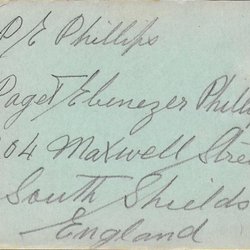 P E Phillips
Paget Ebenezer Phill
04 Maxwell Stre
South Shields
England